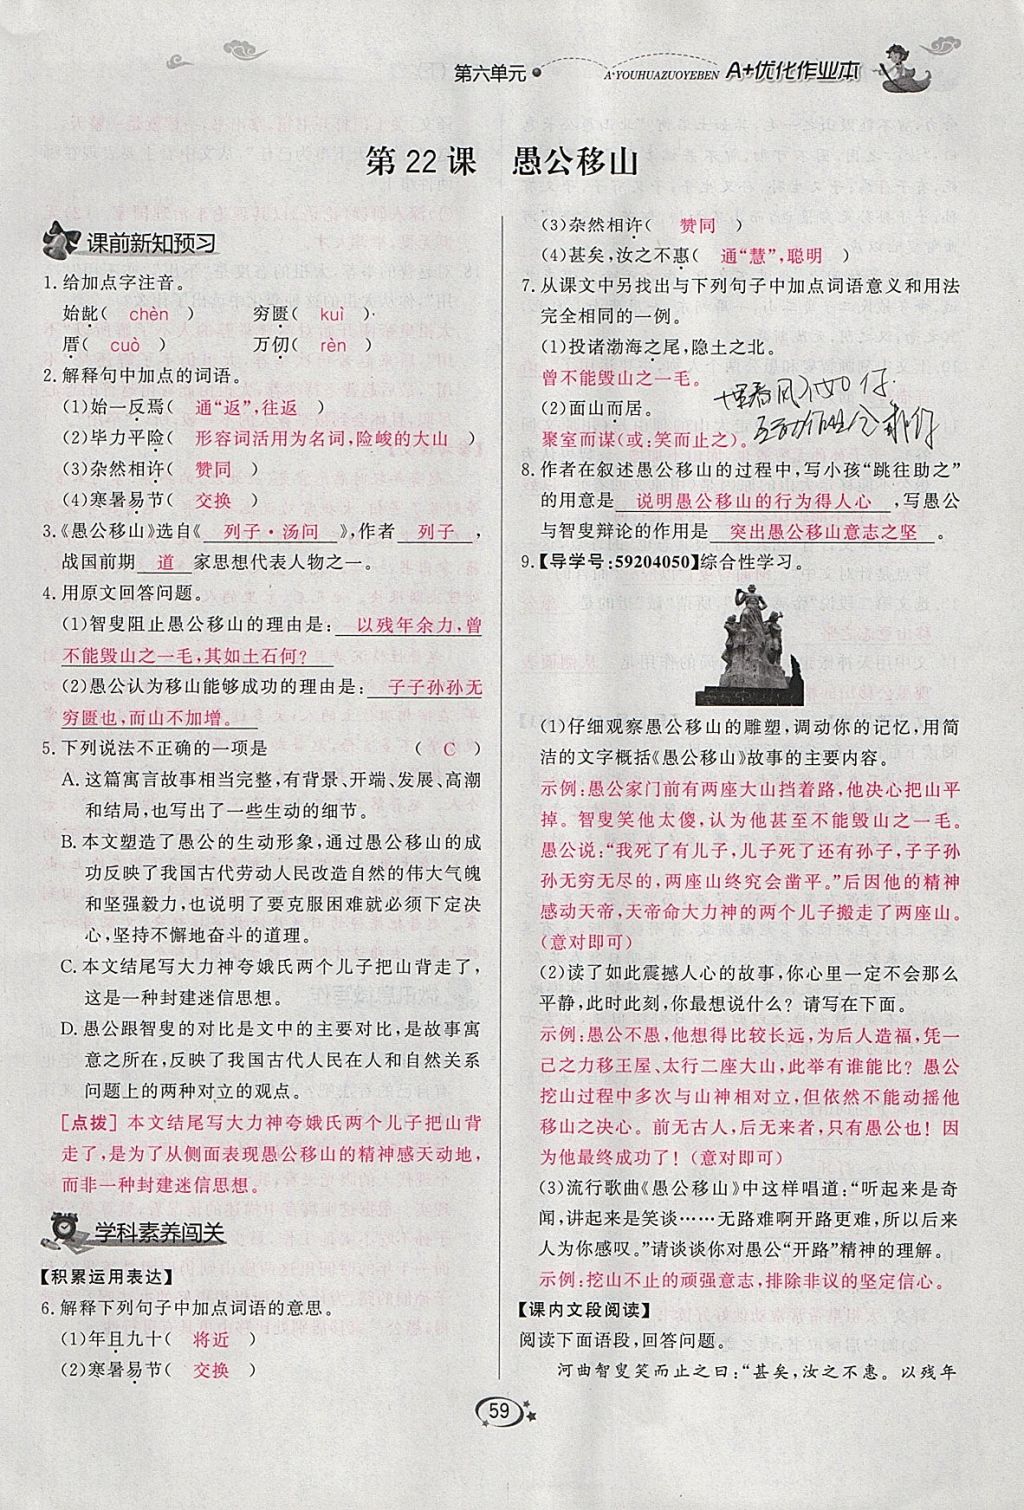 第六单元
A+YOUHUAZUOYEBEN
A+优化作业本
第22课 愚公移山
课前新知预习
1.给加点字注音。
始龀( chèn ) 穷匮( kuì )
厝( cuò ) 万仞( rèn )
2.解释句中加点的词语。
(1)始一反焉( 通“返”,往返 )
(2)毕力平险( 形容词活用为名词,险峻的大山 )
(3)杂然相许( 赞同 )
(4)寒暑易节( 交换 )
3.《愚公移山》选自《 列子·汤问 》,作者 列子 ,
战国前期 道 家思想代表人物之一。
4.用原文回答问题。
(1)智叟阻止愚公移山的理由是: 以残年余力,曾
不能毁山之一毛,其如土石何?
(2)愚公认为移山能够成功的理由是: 子子孙孙无
穷匮也,而山不加增。
5.下列说法不正确的一项是 ( C )
A.这篇寓言故事相当完整,有背景、开端、发展、高潮
和结局,也写出了一些生动的细节。
B.本文塑造了愚公的生动形象,通过愚公移山的成
功反映了我国古代劳动人民改造自然的伟大气魄
和坚强毅力,也说明了要克服困难就必须下定决
心,坚持不懈地奋斗的道理。
C.本文结尾写大力神夸娥氏两个儿子把山背走了,
这是一种封建迷信思想。
D.愚公跟智叟的对比是文中的主要对比,是故事寓
意之所在,反映了我国古代人民在人和自然关系
问题上的两种对立的观点。
[点拨] 本文结尾写大力神夸娥氏两个儿子把山背
走了,是为了从侧面表现愚公移山的精神感天动地,
而非一种封建迷信思想。
学科素养闯关
【积累运用表达】
6.解释下列句子中加点词语的意思。
(1)年且九十( 将近 )
(2)寒暑易节( 交换 )
(3)杂然相许( 赞同 )
(4)甚矣,汝之不惠( 通“慧”,聪明 )
7.从课文中另找出与下列句子中加点词语意义和用法
完全相同的一例。
(1)投诸渤海之尾,隐土之北。
曾不能毁山之一毛。
(2)面山而居。
聚室而谋(或:笑而止之)。
8.作者在叙述愚公移山的过程中,写小孩“跳往助之”
的用意是 说明愚公移山的行为得人心 ,写愚公
与智叟辩论的作用是 突出愚公移山意志之坚 。
9.【导学号:59204050】综合性学习。
(1)仔细观察愚公移山的雕塑,调动你的记忆,用简
洁的文字概括《愚公移山》故事的主要内容。
示例:愚公家门前有两座大山挡着路,他决心把山平
掉。智叟笑他太傻,认为他甚至不能毁山之一毛。
愚公说:“我死了有儿子,儿子死了还有孙子,子子孙
孙无穷无尽的,两座山终究会凿平。”后因他的精神
感动天帝,天帝命大力神的两个儿子搬走了两座山。
(意对即可)
(2)读了如此震撼人心的故事,你心里一定不会那么
平静,此时此刻,你最想说什么?请写在下面。
示例:愚公不愚,他想得比较长远,为后人造福,凭一
己之力移王屋、太行二座大山,此举有谁能比?愚公
挖山过程中多次与山神相对立,但依然不能动摇他
移山之决心。前无古人,后无来者,只有愚公也!因
为他最终成功了!(意对即可)
(3)流行歌曲《愚公移山》中这样唱道:“听起来是奇
闻,讲起来是笑谈……无路难啊开路更难,所以后来
人为你感叹。”请谈谈你对愚公“开路”精神的理解。
示例:挖山不止的顽强意志,排除非议的坚定信心。
【课内文段阅读】
阅读下面语段,回答问题。
河曲智叟笑而止之曰:“甚矣,汝之不惠。以残年
59